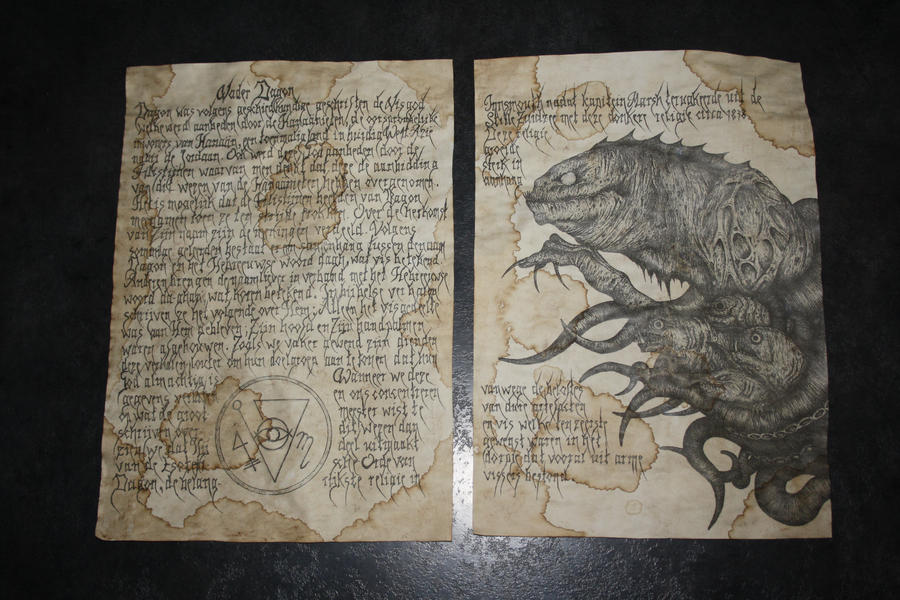 Vader Dagon
Dagon was volgens geschiedkundige geschriften de Visgod
welke werd aanbeden door de Kanaänieten, de oorspronkelijke
inwoners van Kanaän, een toenmalig land in huidig West Azië
nabij de Jordaan. Ook werd deze God aanbeden door de
Filistijnen waarvan men denkt dat deze de aanbidding
van dit wezen van de Kanaänieten hebben overgenomen.
Het is mogelijk dat de Filistijnen beelden van Dagon
meenamen toen ze ten strijde trokken. Over de herkomst
van Zijn naam zijn de meningen verdeeld. Volgens
sommige geleerden bestaat er een samenhang tussen de naam
Dagon en het Hebreeuwse woord dagh, wat vis betekend.
Anderen brengen de naam liever in verband met het Hebreeuwse
woord daghan, wat koren betekend. In bijbelse verhalen
schrijven ze het volgende over Hem: Alleen het visgedeelte
was van Hem gebleven; Zijn hoofd en Zijn handpalmen
waren afgehouwen. Zoals we vaker gewend zijn dienden
deze verhalen louter om hun doelgroep aan te tonen dat hun
God almachtig is. Wanneer we deze
gegevens en ons concentreren
op wat de groot meester wist te
schrijven over dit wezen dan
zien we dat Hij deel uitmaakt
van de Esoterische Orde van
Dagon, de belangrijkste religie in
Innsmouth nadat kapitein Marsh terugkeerde uit de
Stille Zuidzee met deze donkere religie circa 1838.
Deze religie
groeide
sterk in
aanhang
vanwege de beloftes
van dure artefacten
en vis welke ten zeerste
gewenst waren in het
dorpje dat vooral uit arme
vissers bestond.